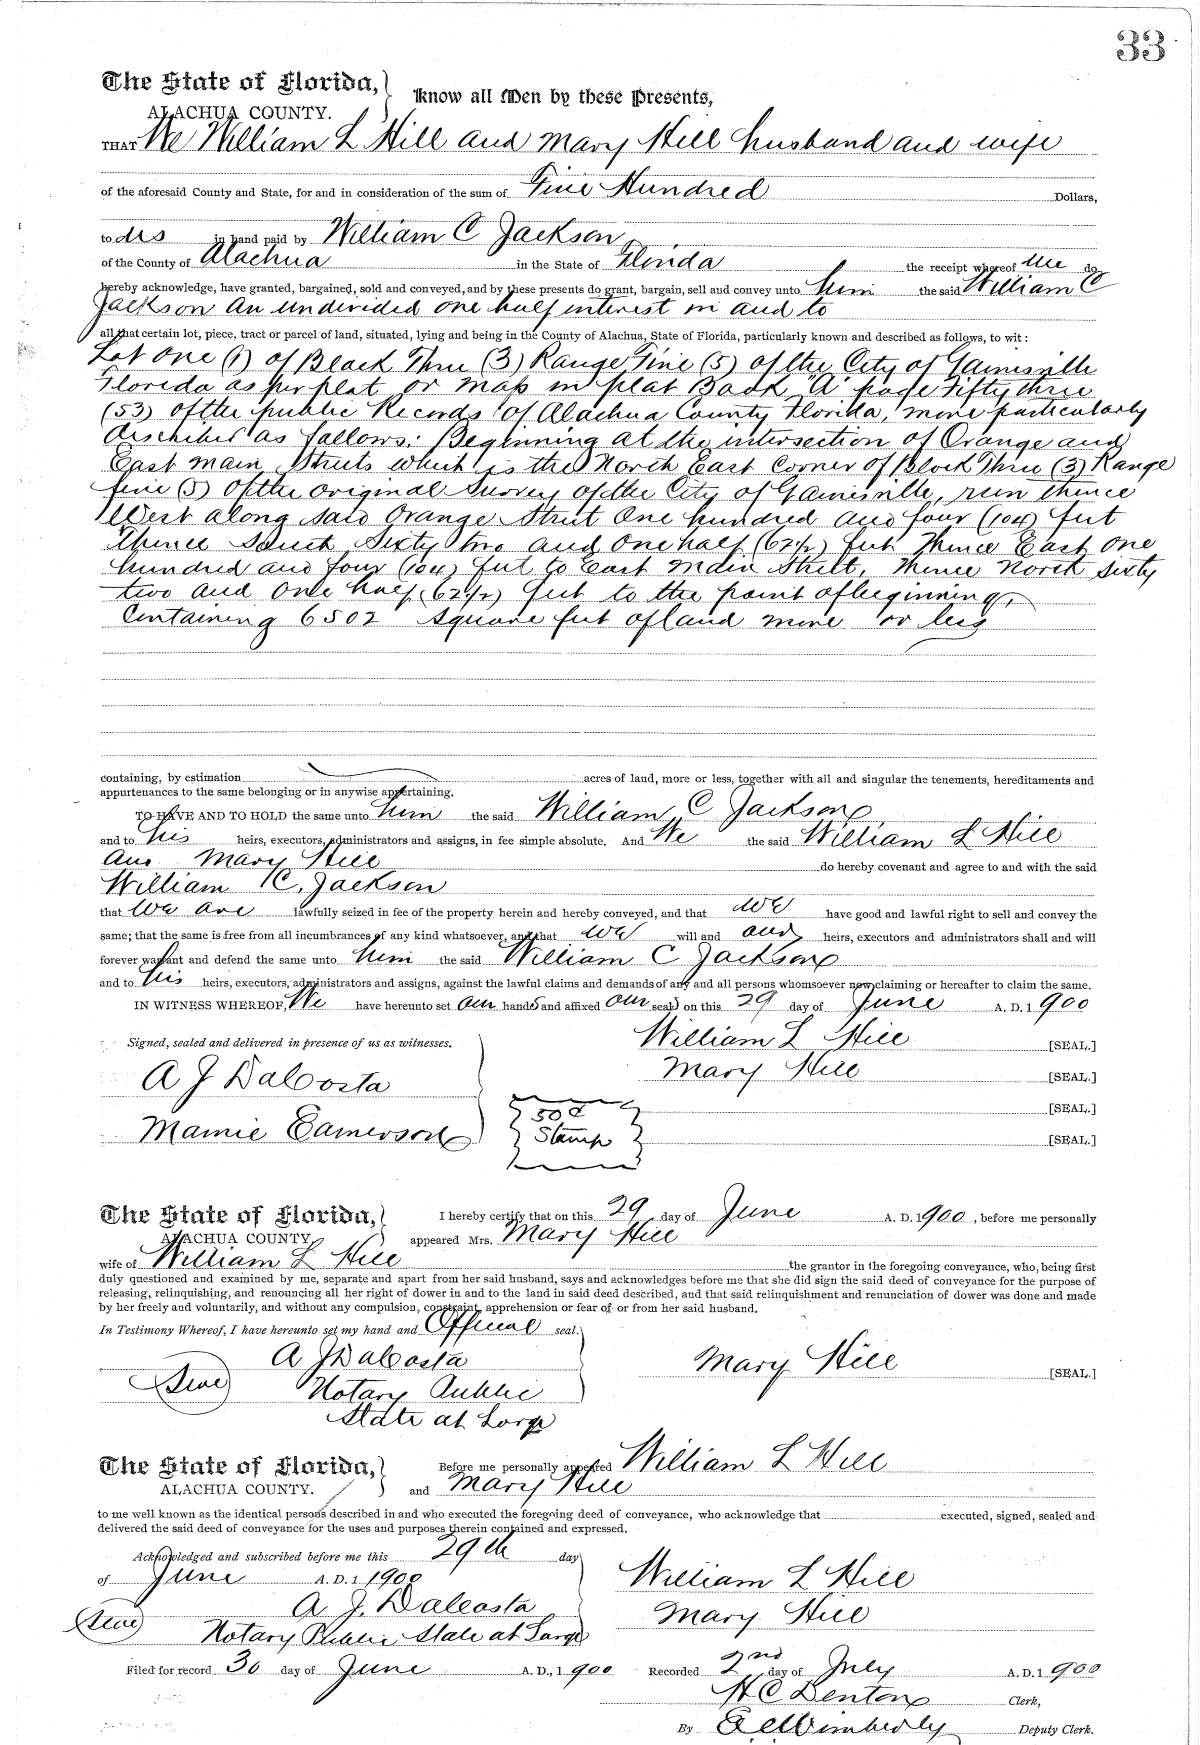 33
The State of Florida,
ALACHUA COUNTY.
Know all Men by these Presents,
THAT We William L Hill and Mary Hill husband and wife
of the aforesaid County and State, for and in consideration of the sum of Five Hundred Dollars,
to us in hand paid by William C Jackson
of the County of Alachua in the State of Florida the receipt whereof we do
hereby acknowledge, have granted, bargained, sold and conveyed, and by these presents do grant, bargain, sell and convey unto him the said William C
Jackson an undivided one half interest in and to
all that certain lot, piece, tract or parcel of land, situated, lying and being in the County of Alachua, State of Florida, particularly known and described as follows, to wit:
Lot One (1) of Block Three (3) Range Five (5) of the City of Gainesville
Florida as per plat or map in plat Book "A" page Fifty three
(53) of the public Records of Alachua County Florida, more particularly
described as follows: Beginning at the intersection of Orange and
East Main Streets which is the North East Corner of Block Three (3) Range
five (5) of the original Survey of the City of Gainesville, run thence
West along said Orange Street One hundred and four (104) feet
Thence South Sixty two and one half (62½) feet Thence East one
hundred and four (104) feet to East Main Street, Thence North Sixty
two and one half (62½) feet to the point of beginning,
Containing 6502 square feet of land more or less
containing, by estimation acres of land, more or less, together with all and singular the tenements, hereditaments and
appurtenances to the same belonging or in anywise appertaining.
TO HAVE AND TO HOLD the same unto him the said William C Jackson
and to his heirs, executors, administrators and assigns, in fee simple absolute. And We the said William L Hill
and Mary Hill do hereby covenant and agree to and with the said
William C. Jackson
that we are lawfully seized in fee of the property herein and hereby conveyed, and that we have good and lawful right to sell and convey the
same; that the same is free from all incumbrances of any kind whatsoever, and that we will and our heirs, executors and administrators shall and will
forever warrant and defend the same unto him the said William C Jackson
and to his heirs, executors, administrators and assigns, against the lawful claims and demands of any and all persons whomsoever now claiming or hereafter to claim the same.
IN WITNESS WHEREOF, We have hereunto set our hands and affixed our seals on this 29 day of June A. D. 1900
Signed, sealed and delivered in presence of us as witnesses.
William L Hill [SEAL.]
Mary Hill [SEAL.]
A J DaCosta
[SEAL.]
Mamie Eamerson
50¢
Stamp
[SEAL.]
The State of Florida,
ALACHUA COUNTY
I hereby certify that on this 29 day of June A. D. 1900, before me personally
appeared Mrs. Mary Hill
wife of William L Hill the grantor in the foregoing conveyance, who, being first
duly questioned and examined by me, separate and apart from her said husband, says and acknowledges before me that she did sign the said deed of conveyance for the purpose of
releasing, relinquishing, and renouncing all her right of dower in and to the land in said deed described, and that said relinquishment and renunciation of dower was done and made
by her freely and voluntarily, and without any compulsion, constraint, apprehension or fear of or from her said husband.
In Testimony Whereof, I have hereunto set my hand and Official seal.
A J DaCosta
Mary Hill [SEAL.]
Seal
Notary Public
State at Large
The State of Florida,
ALACHUA COUNTY.
Before me personally appeared William L Hill
and Mary Hill
to me well known as the identical persons described in and who executed the foregoing deed of conveyance, who acknowledge that executed, signed, sealed and
delivered the said deed of conveyance for the uses and purposes therein contained and expressed.
Acknowledged and subscribed before me this 29th day
of June A. D. 1 1900
William L Hill
A. J. DaCosta
Mary Hill
Seal
Notary Public State at Large
Filed for record 30 day of June A. D., 1 900
Recorded 2nd day of July A. D. 1 900
H C Denton Clerk,
By E E Wimberly Deputy Clerk.